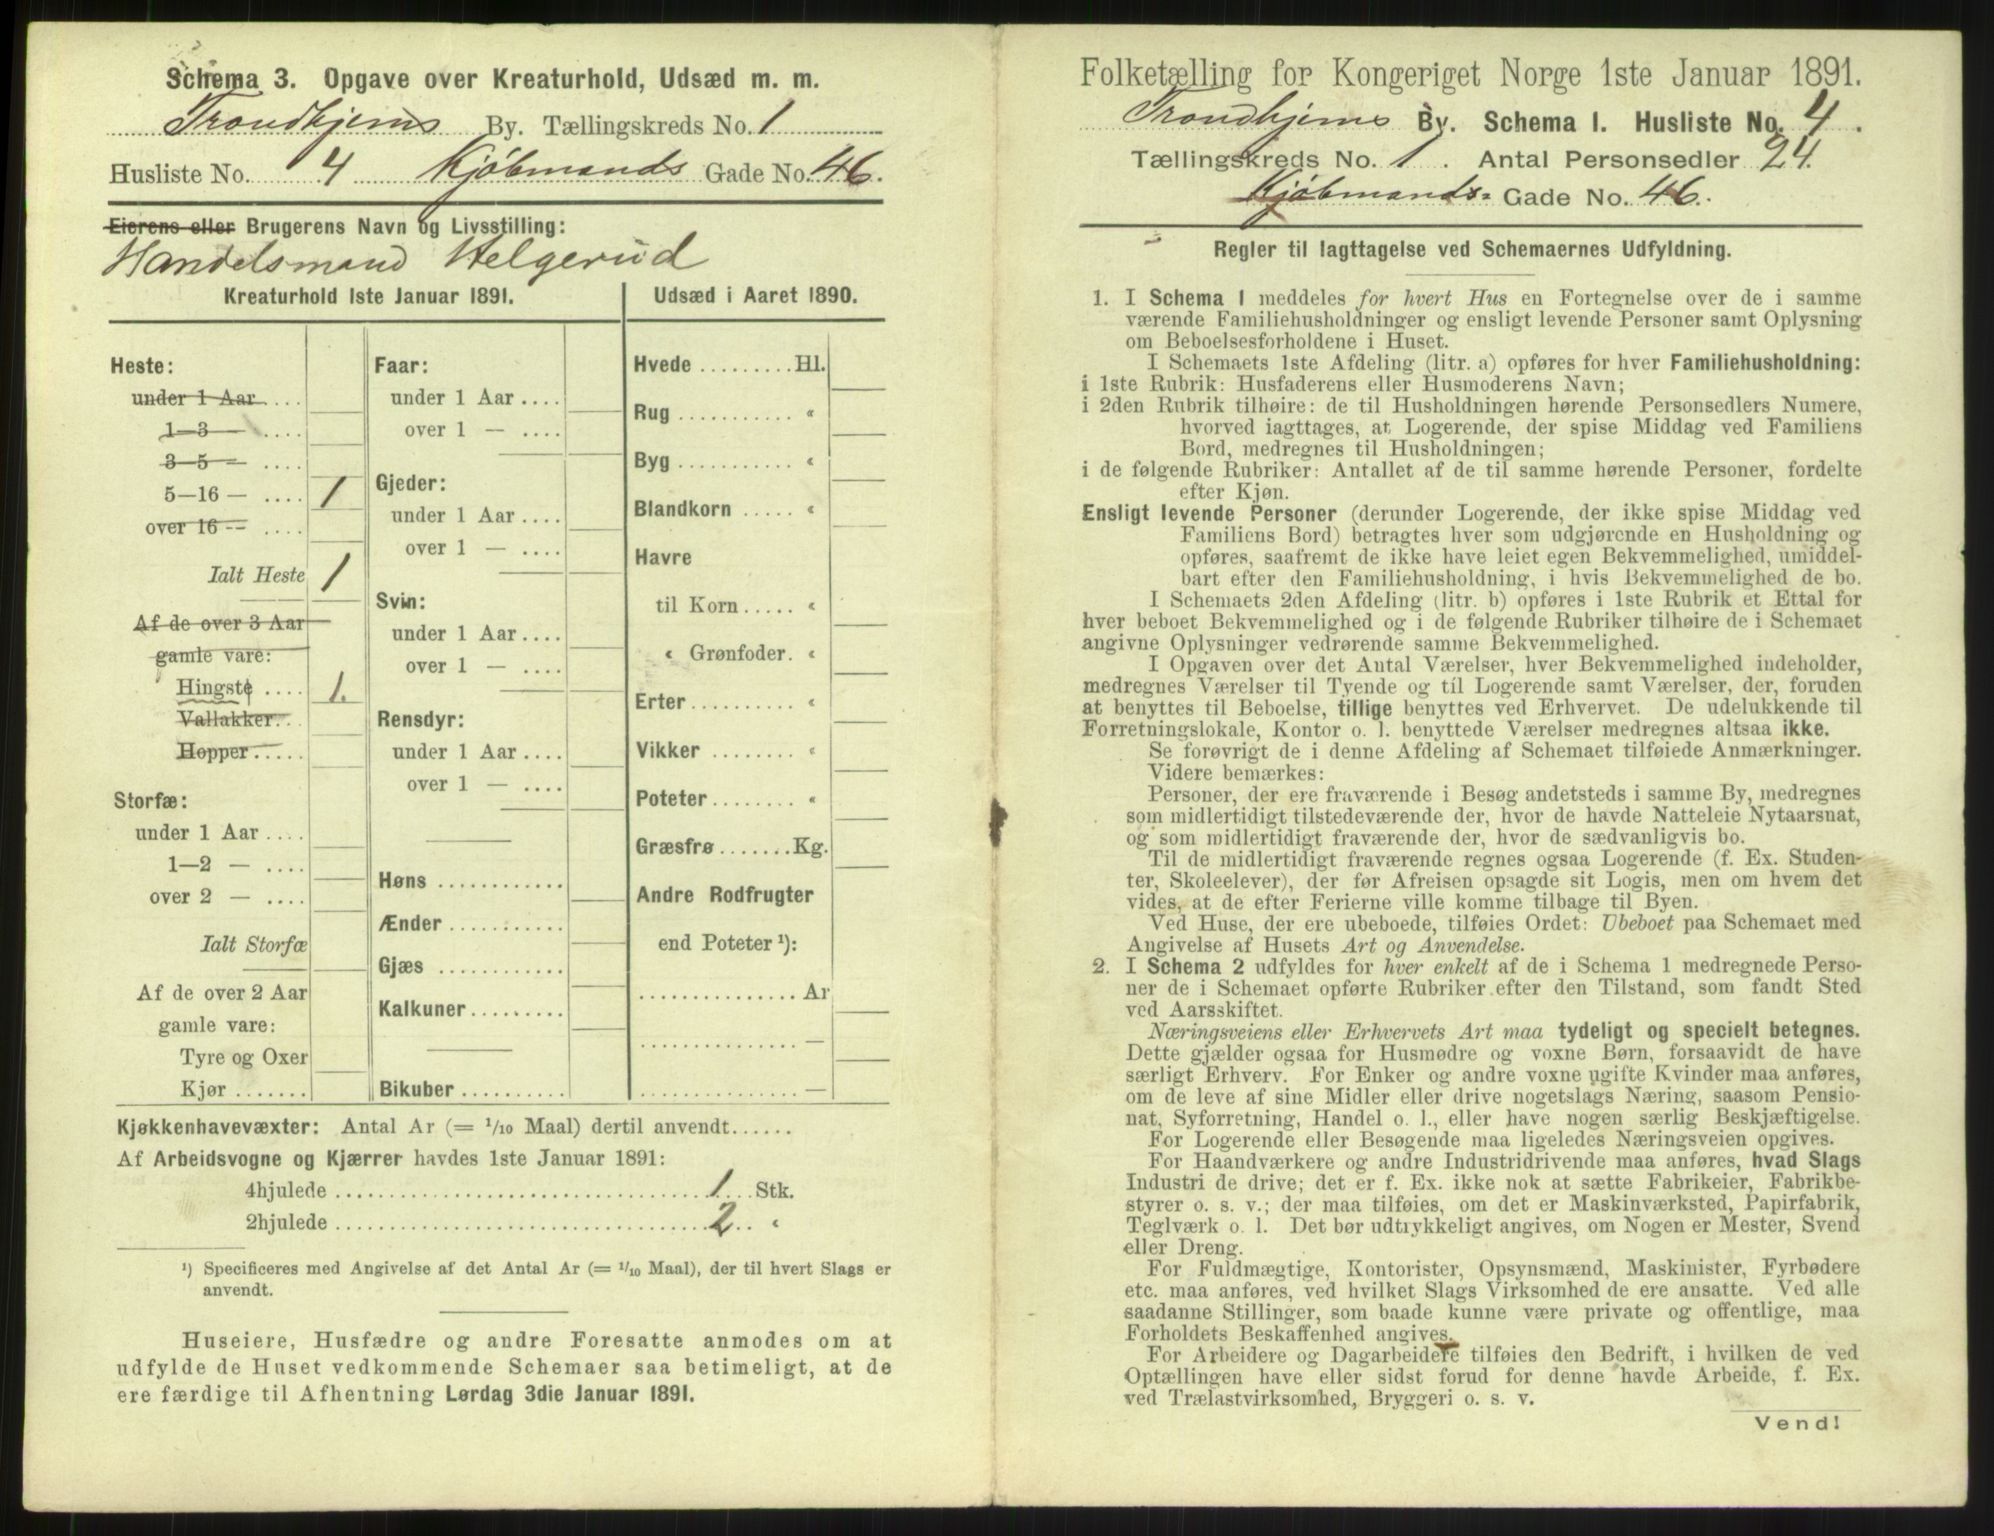 Schema 3. Opgave over Kreaturhold, Udsæd m. m.
Trondhjems By. Tællingskreds No. 1
Husliste No. 4 Kjøbmands Gade No. 46.
Eierens eller Brugerens Navn og Livsstilling:
Handelsmand Helgerud
Kreaturhold 1ste Januar 1891.
Heste:
under 1 Aar ....
1—3 — ....
3—5 — ....
5—16 — .... 1
over 16 — ....
Ialt Heste 1
Af de over 3 Aar
gamle vare:
Hingste .... 1.
Vallakker..
Hopper.....
Storfæ:
under 1 Aar ....
1—2 — ....
over 2 — ....
Ialt Storfæ
Af de over 2 Aar
gamle vare:
Tyre og Oxer
Kjør .......
Faar:
under 1 Aar ....
over 1 — ....
Gjeder:
under 1 Aar ....
over 1 — ....
Svin:
under 1 Aar ....
over 1 — ....
Rensdyr:
under 1 Aar ....
over 1 — ....
Høns ............
Ænder ...........
Gjæs ............
Kalkuner.........
Bikuber ..........
Udsæd i Aaret 1890.
Hvede .........Hl.
Rug ........... «
Byg ........... «
Blandkorn ..... «
Havre
til Korn ..... «
« Grønfoder. «
Erter.......... «
Vikker ........ «
Poteter........ «
Græsfrø.......Kg.
Andre Rodfrugter
end Poteter ¹):
...............Ar
............... —
............... —
Kjøkkenhavevæxter: Antal Ar (= 1/10 Maal) dertil anvendt......
Af Arbeidsvogne og Kjærrer havdes 1ste Januar 1891:
4hjulede ........ 1 ... Stk.
2hjulede ........ 2 .. «
¹) Specificeres med Angivelse af det Antal Ar (= 1/10 Maal), der til hvert Slags er
anvendt.
Huseiere, Husfædre og andre Foresatte anmodes om at
udfylde de Huset vedkommende Schemaer saa betimeligt, at de
ere færdige til Afhentning Lørdag 3die Januar 1891.
Folketælling for Kongeriget Norge 1ste Januar 1891.
Trondhjems By. Schema 1. Husliste No. 4.
Tællingskreds No. 1. Antal Personsedler 24.
Kjøbmands- Gade No. 46.
Regler til Iagttagelse ved Schemaernes Udfyldning.
1. I Schema 1 meddeles for hvert Hus en Fortegnelse over de i samme
værende Familiehusholdninger og ensligt levende Personer samt Oplysning
om Beboelsesforholdene i Huset.
I Schemaets 1ste Afdeling (litr. a) opføres for hver Familiehusholdning:
i 1ste Rubrik: Husfaderens eller Husmoderens Navn;
i 2den Rubrik tilhøire: de til Husholdningen hørende Personsedlers Numere,
hvorved iagttages, at Logerende, der spise Middag ved Familiens
Bord, medregnes til Husholdningen;
i de følgende Rubriker: Antallet af de til samme hørende Personer, fordelte
efter Kjøn.
Ensligt levende Personer (derunder Logerende, der ikke spise Middag ved
Familiens Bord) betragtes hver som udgjørende en Husholdning og
opføres, saafremt de ikke have leiet egen Bekvemmelighed, umiddel-
bart efter den Familiehusholdning, i hvis Bekvemmelighed de bo.
I Schemaets 2den Afdeling (litr. b) opføres i 1ste Rubrik et Ettal for
hver beboet Bekvemmelighed og i de følgende Rubriker tilhøire de i Schemaet
angivne Oplysninger vedrørende samme Bekvemmelighed.
I Opgaven over det Antal Værelser, hver Bekvemmelighed indeholder,
medregnes Værelser til Tyende og til Logerende samt Værelser, der, foruden
at benyttes til Beboelse, tillige benyttes ved Erhvervet. De udelukkende til
Forretningslokale, Kontor o. l. benyttede Værelser medregnes altsaa ikke.
Se forøvrigt de i denne Afdeling af Schemaet tilføiede Anmærkninger.
Videre bemærkes:
Personer, der ere fraværende i Besøg andetsteds i samme By, medregnes
som midlertidigt tilstedeværende der, hvor de havde Natteleie Nytaarsnat,
og som midlertidigt fraværende der, hvor de sædvanligvis bo.
Til de midlertidigt fraværende regnes ogsaa Logerende (f. Ex. Studen-
ter, Skoleelever), der før Afreisen opsagde sit Logis, men om hvem det
vides, at de efter Ferierne ville komme tilbage til Byen.
Ved Huse, der ere ubeboede, tilføies Ordet: Ubeboet paa Schemaet med
Angivelse af Husets Art og Anvendelse.
2. I Schema 2 udfyldes for hver enkelt af de i Schema 1 medregnede Perso-
ner de i Schemaet opførte Rubriker efter den Tilstand, som fandt Sted
ved Aarsskiftet.
Næringsveiens eller Erhvervets Art maa tydeligt og specielt betegnes.
Dette gjælder ogsaa for Husmødre og voxne Børn, forsaavidt de have
særligt Erhverv. For Enker og andre voxne ugifte Kvinder maa anføres,
om de leve af sine Midler eller drive nogetslags Næring, saasom Pensio-
nat, Syforretning, Handel o. l., eller have nogen særlig Beskjæftigelse.
For Logerende eller Besøgende maa ligeledes Næringsveien opgives.
For Haandværkere og andre Industridrivende maa anføres, hvad Slags
Industri de drive; det er f. Ex. ikke nok at sætte Fabrikeier, Fabrikbe-
styrer o. s. v.; der maa tilføies, om det er Maskinværksted, Papirfabrik,
Teglværk o. l. Det bør udtrykkeligt angives, om Nogen er Mester, Svend
eller Dreng.
For Fuldmægtige, Kontorister, Opsynsmænd, Maskinister, Fyrbødere
etc. maa anføres, ved hvilket Slags Virksomhed de ere ansatte. Ved alle
saadanne Stillinger, som baade kunne være private og offentlige, maa
Forholdets Beskaffenhed angives.
For Arbeidere og Dagarbeidere tilføies den Bedrift, i hvilken de ved
Optællingen have eller sidst forud for denne havde Arbeide, f. Ex.
ved Trælastvirksomhed, Bryggeri o. s. v.
Vend!